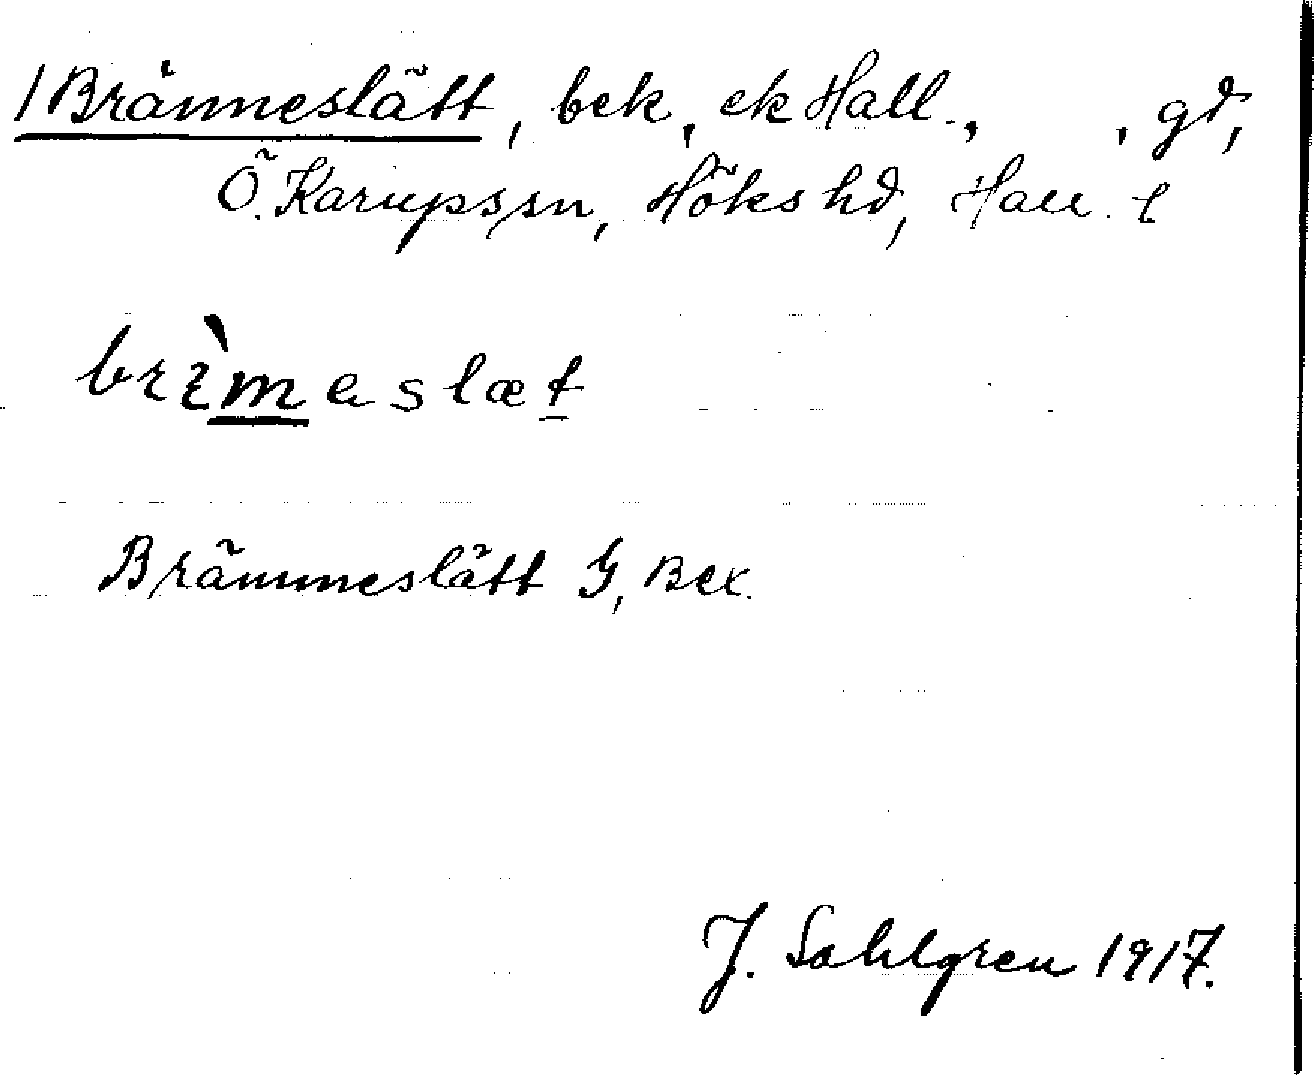 /Bränneslätt, bek, ek Hall., , gd,
Ö. Karups sn, Höks hd, Hall. l
brèmaslæt
Brämmeslätt G, Bex.
J. Sahlgren 1917.